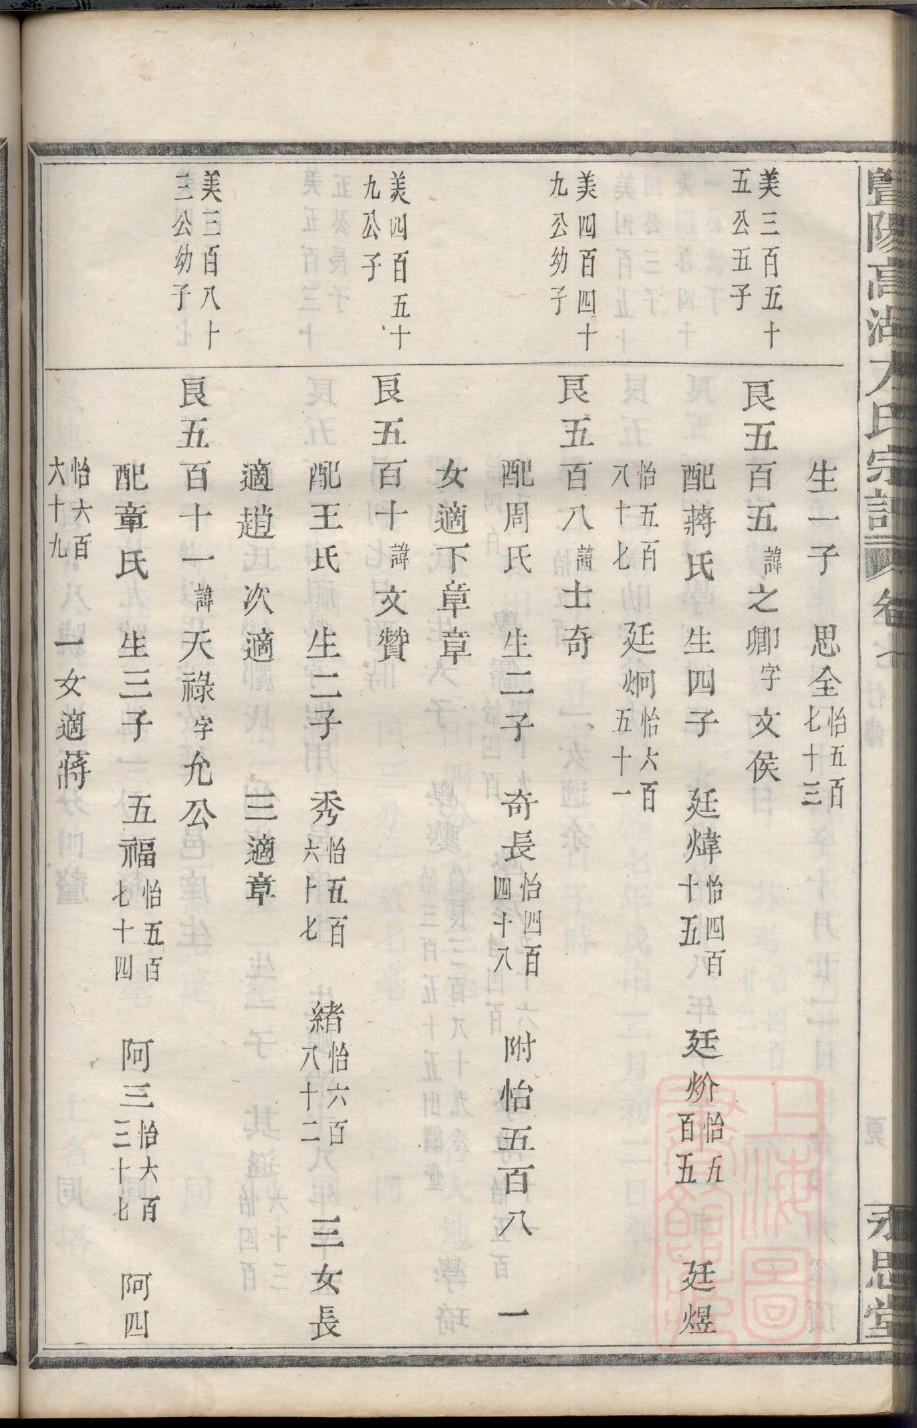 暨陽高湖 氏宗譜 卷七 永思堂
生一子 思全怡五百七十三
美三百五十五公五子
良五百五諱之卿字文侯
配蔣氏 生四子 廷煒怡四百十五 廷炌怡五百五 廷煜
怡五百八十七 廷炯怡六百五十一
美四百四十九公幼子
良五百八諱士奇
配周氏 生二子 奇長怡四百四十八 附怡五百八 一
女適下章章
美四百五十九公子
良五百十諱文贊
配王氏 生二子 秀怡五百六十七 緒怡六百八十二 三女長
適趙 次適 三適章
美三百八十三公幼子
良五百十一諱天祿字允公
配章氏 生三子 五福怡五百七十四 阿三怡六百三十七 阿四
怡六百六十九 一女適蔣